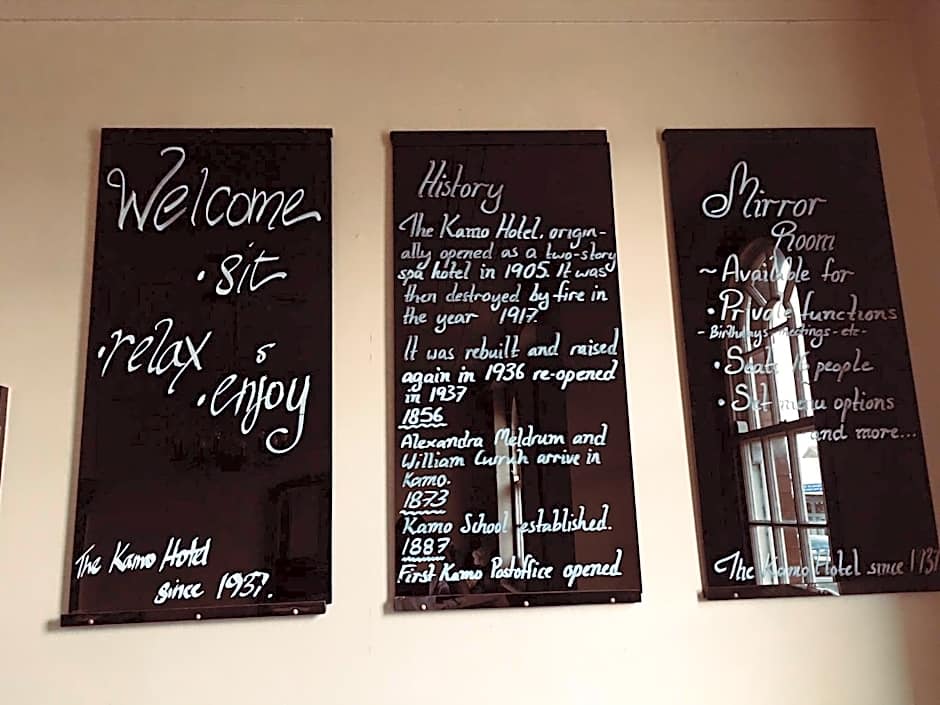 Welcome
• sit
• relax &
• enjoy
The Kamo Hotel
since 1937.
History
The Kamo Hotel, origin-
ally opened as a two-story
spa hotel in 1905. It was
then destroyed by fire in
the year 1917.
It was rebuilt and raised
again in 1936 re-opened
in 1937
1856
Alexandra Meldrum and
William arrive in
Kamo.
1873
Kamo School established.
1887
First Kamo Postoffice opened
Mirror
Room
~ Available for
• Private functions
- Birthdays - meetings - etc -
• Seats people
• Set menu options
and more...
The Kamo Hotel since 1937